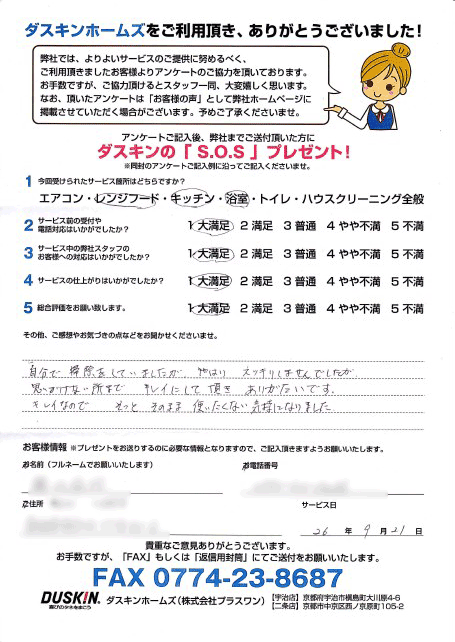 ダスキンホームズをご利用頂き、ありがとうございました!
弊社では、よりよいサービスのご提供に努めるべく、
ご利用頂きましたお客様よりアンケートのご協力を頂いております。
お手数ですが、ご協力頂けるとスタッフ一同、大変嬉しく思います。
なお、頂いたアンケートは「お客様の声」として弊社ホームページに
掲載させていただく場合がございます。予めご了承くださいませ。
アンケートご記入後、弊社までご送付頂いた方に
ダスキンの「 S.O.S 」プレゼント!
※同封のアンケートご記入例に沿ってご記入くださいませ。
1 今回受けられたサービス箇所はどちらですか?
エアコン・レンジフード・キッチン・浴室・トイレ・ハウスクリーニング全般
2 サービス前の受付や
電話対応はいかがでしたか?
1 大満足 2 満足 3 普通 4 やや不満 5 不満
3 サービス中の弊社スタッフの
お客様への対応はいかがでしたか?
1 大満足 2 満足 3 普通 4 やや不満 5 不満
4 サービスの仕上がりはいかがでしたか?
1 大満足 2 満足 3 普通 4 やや不満 5 不満
5 総合評価をお願い致します。
1 大満足 2 満足 3 普通 4 やや不満 5 不満
その他、ご感想やお気づきの点などをお聞かせくださいませ。
自分で 掃除をしていましたが、やはり スッキリしませんでしたが、
思いがけない所まで キレイにして頂き ありがたいです。
キレイなので もっと そのまま 使いたくない気持になりました
お客様情報 ※プレゼントをお送りするのに必要な情報となりますので、ご記入頂きますようお願いいたします。
お名前(フルネームでお願いいたします)
お電話番号
ご住所
サービス日
26 年 9 月 21 日
貴重なご意見ありがとうございます。
お手数ですが、「FAX」もしくは「返信用封筒」にてご送付をお願いいたします。
FAX 0774-23-8687
DUSKIN
喜びのタネをまこう
ダスキンホームズ(株式会社プラスワン)
【宇治店】京都府宇治市槇島町大川原4-6
【二条店】京都市中京区西ノ京原町105-2